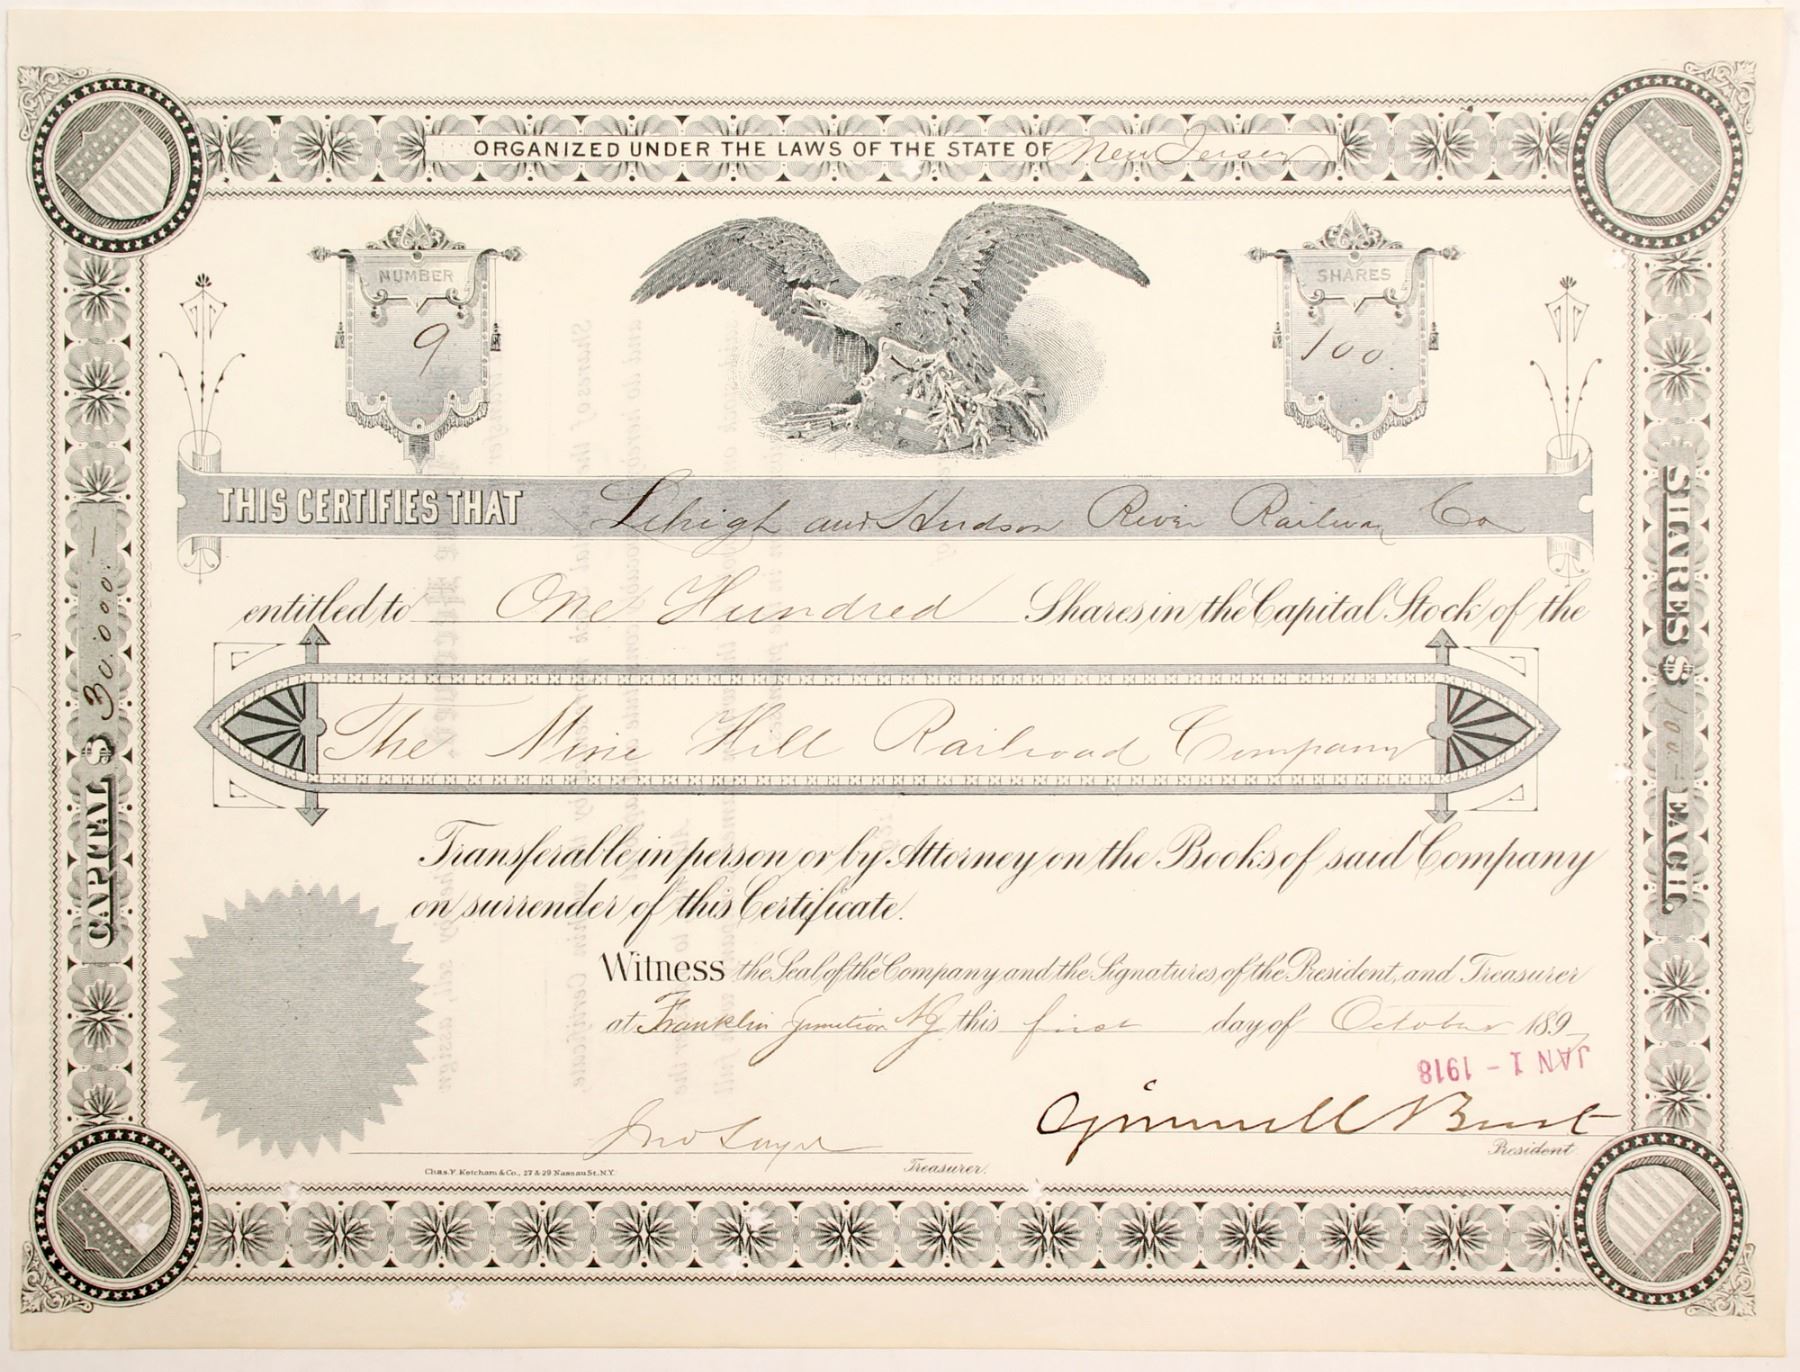 ORGANIZED UNDER THE LAWS OF THE STATE OF New Jersey
NUMBER
9
SHARES
100
THIS CERTIFIES THAT Lehigh and Hudson River Railway Co
entitled to One Hundred Shares in the Capital Stock of the
The Mine Hill Railroad Company
Transferable in person or by Attorney on the Books of said Company
on surrender of this Certificate.
Witness the Seal of the Company and the Signatures of the President, and Treasurer
at Franklin Junction NJ this first day of October 189
JAN 1 - 1918
Grinnell Burt
President
Jno
Treasurer.
Chas. F. Ketcham & Co., 27 & 29 Nassau St. N.Y.
CAPITAL $ 30.000.—
SHARES $ 100.— EACH.